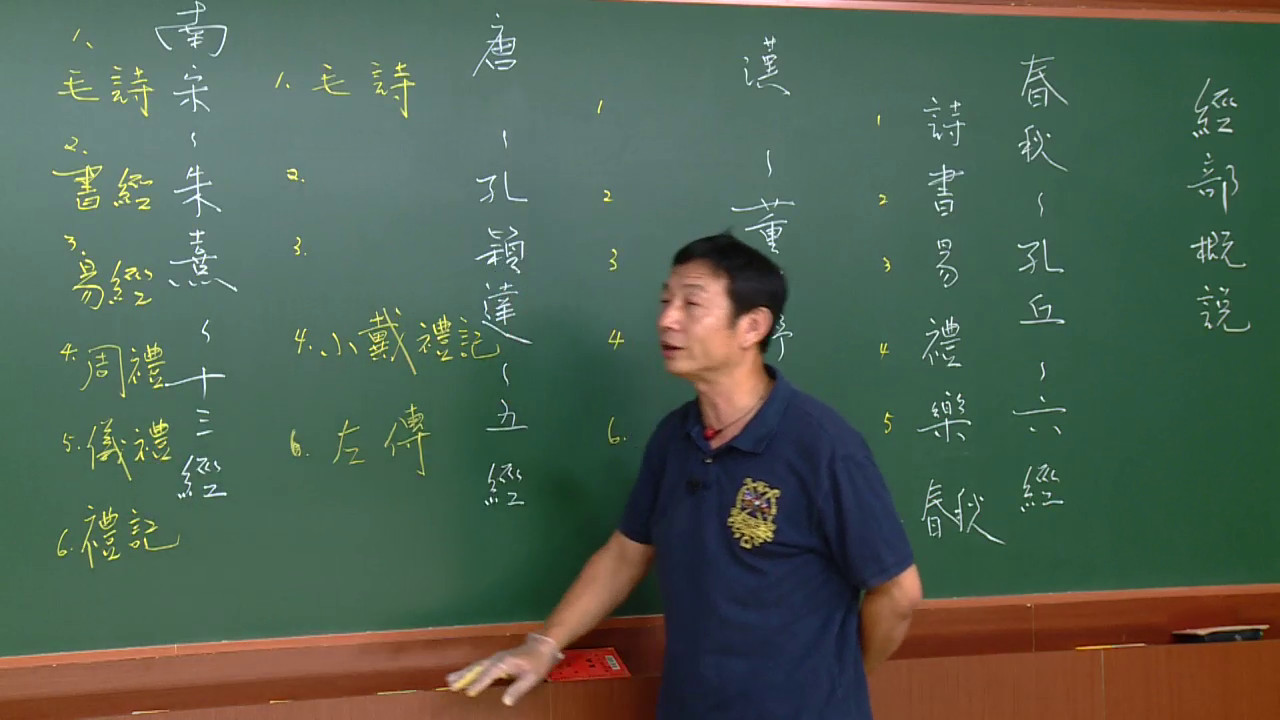 經部概說
春秋~孔丘~六經
1 詩
2 書
3 易
4 禮
5 樂
春秋
漢~董
1
2
3
4
6.
唐~孔穎達~五經
1. 毛詩
2.
3.
4. 小戴禮記
6. 左傳
南宋~朱熹~十三經
1、毛詩
2、書經
3. 易經
4. 周禮
5. 儀禮
6. 禮記